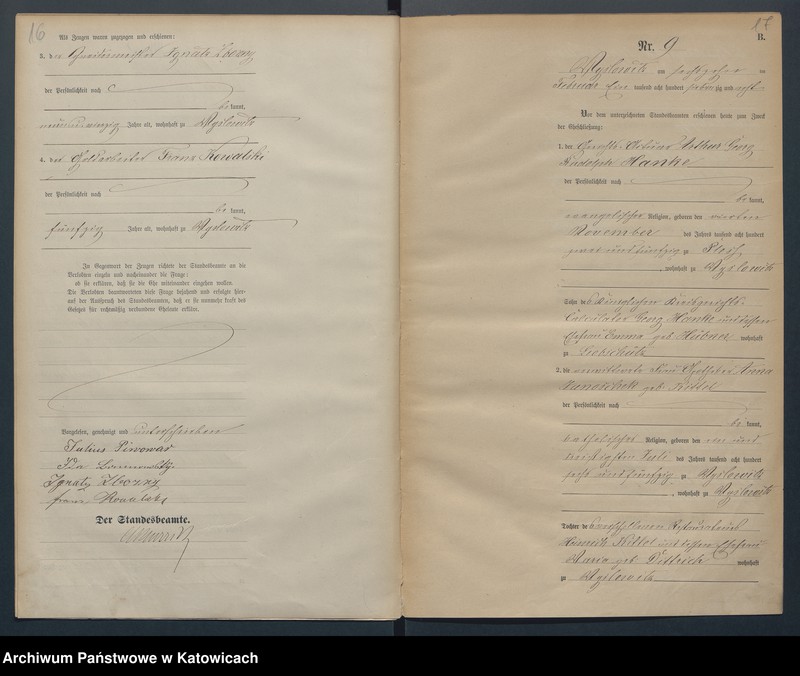 16
Als Zeugen waren zugezogen und erschienen:
3. der Schneidermeister Ignatz Zborny
der Persönlichkeit nach
be kannt,
neunundzwanzig Jahre alt, wohnhaft zu Myslowitz
4. der Goldarbeiter Franz Kowalski
der Persönlichkeit nach
be kannt,
fünfzig Jahre alt, wohnhaft zu Myslowitz
In Gegenwart der Zeugen richtete der Standesbeamte an die
Verlobten einzeln und nacheinander die Frage:
ob sie erklären, daß sie die Ehe miteinander eingehen wollen.
Die Verlobten beantworteten diese Frage bejahend und erfolgte hier-
auf der Ausspruch des Standesbeamten, daß er sie nunmehr kraft des
Gesetzes für rechtmäßig verbundene Eheleute erkläre.
Vorgelesen, genehmigt und unterschrieben
Julius Piwowar
Ida
Ignatz Zborny
Franz Kowalski
Der Standesbeamte.
17
B.
Nr. 9
Myslowitz am sechszehn ten
Februar Ein tausend acht hundert siebenzig und acht
Vor dem unterzeichneten Standesbeamten erschienen heute zum Zweck
der Eheschließung:
1. der Arthur Georg
Rudolph Hanke
der Persönlichkeit nach
be kannt,
evangelischer Religion, geboren den vierten
November des Jahres tausend acht hundert
zwei und fünfzig zu Pless,
, wohnhaft zu Myslowitz
Sohn des Königlichen Kreisgerichts-
Calculator Georg Hanke und dessen
Ehefrau Emma geb. Hübner wohnhaft
zu Leobschütz
2. die verwittwete Frau Apotheker Anna
geb. Kittel
der Persönlichkeit nach
be kannt,
katholischer Religion, geboren den ein und
dreißigsten Juli des Jahres tausend acht hundert
sechs und fünfzig zu Myslowitz
, wohnhaft zu Myslowitz
Tochter des verstorbenen Restaurateurs
Heinrich Kittel und dessen Ehefrau
Maria geb. Dittrich wohnhaft
zu Myslowitz
Archiwum Państwowe w Katowicach